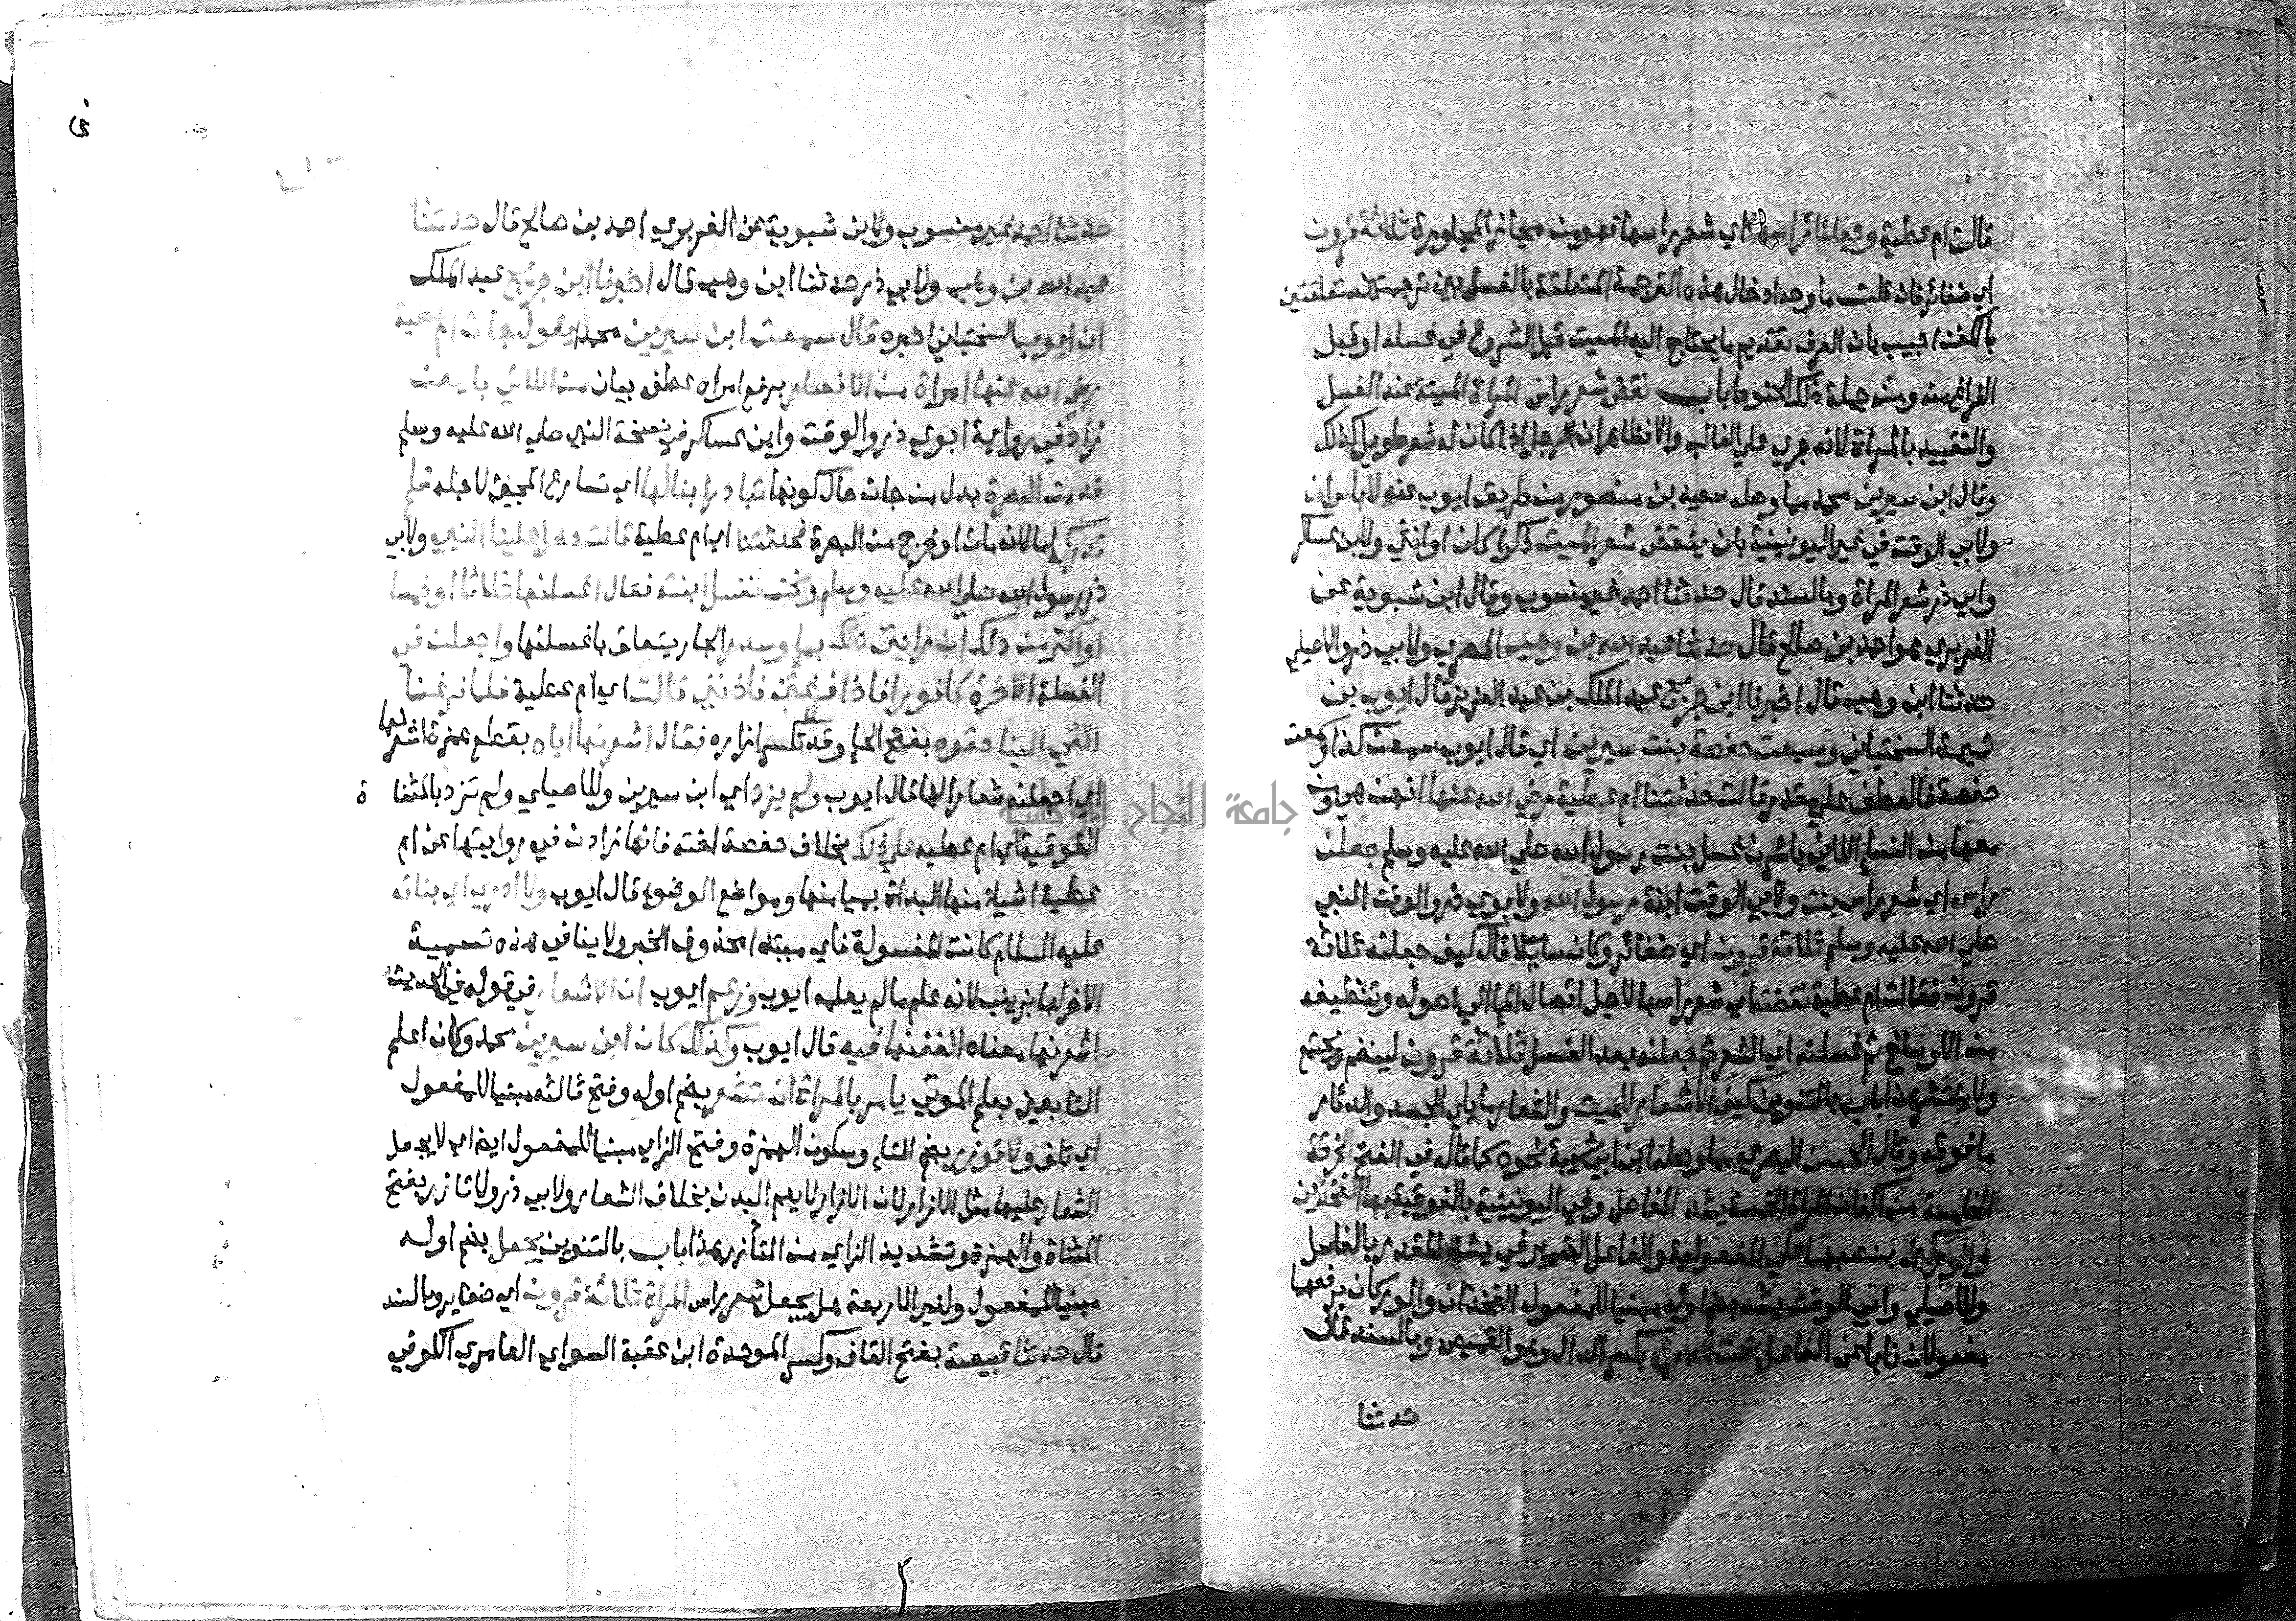 قالت ام عطية وجعلنا راسها اي شعر راسها فهو من مجاز المجاورة ثلاثة قرون
اي ضفائر فان قلت ما وجه ادخال هذه الترجمة المتعلقة بالغسل بين ترجمتين متعلقتين
بالكفن اجيب بان العرف تقديم ما يحتاج اليه الميت قبل الشروع في غسله او قبل
الفراغ منه ومن جملة ذلك الحنوط باب نقض شعر راس المراة الميتة عند الغسل
والتقييد بالمراة لانه جري علي الغالب والا فظاهر ان الرجل اذا كان له شعر طويل كذلك
وقال ابن سيرين محمد مما وصله سعيد بن منصور من طريق ايوب عنه لا باس ان
ولابي الوقت في غير اليونينية بان ينقض شعر الميت ذكرا كان او انثي ولابن عساكر
وابي ذر شعر المراة وبالسند قال حدثنا احمد غير منسوب وقال ابن شبوية عن
الفربري هو احمد بن صالح قال حدثنا عبد الله بن وهب المصري ولابي ذر والاصيلي
حدثنا ابن وهب قال اخبرنا ابن جريج عبد الملك بن عبد العزيز قال ايوب بن
تميمة السختياني وسمعت حفصة بنت سيرين اي قال ايوب سمعت كذا وسمعت
حفصة فالعطف علي مقدر قالت حدثتنا ام عطية رضي الله عنها انهن هي ومن
معها من النساء اللاتي باشرن غسل بنت رسول الله صلي الله عليه وسلم جعلن
راس اي شعر راس بنت ولابي الوقت ابنة رسول الله ولابوي ذر والوقت النبي
صلي الله عليه وسلم ثلاثة قرون اي ضفائر وكان سائلا قال كيف جعلنه ثلاثة
قرون فقالت ام عطية نقضنه اي شعر راسها لاجل اتصال الماء الي اصوله وتنظيفه
من الاوساخ ثم غسلنه اي الشعر ثم جعلنه بعد الغسل ثلاثة قرون لينضم ويجتمع
ولا ينتشر هذا باب بالتنوين كيف الاشعار للميت والشعار ما يلي الجسد والدثار
ما فوقه وقال الحسن البصري مما وصله ابن ابي شيبة نحوه كما قاله في الفتح الخرقة
الخامسة من اكفان المراة الخمسة يشد الغاسل وفي اليونينية بالفوقية بها الفخذين
والوركين بنصبهما علي المفعولية والفاعل الضمير في يشد المقدر بالغاسل
وللاصيلي وابي الوقت يشد بضم اوله مبنيا للمفعول الفخذان والوركان برفعهما
مفعولان نابا عن الفاعل تحت الدرع بكسر الدال وهو القميص وبالسند قال
حدثنا
حدثنا احمد غير منسوب ولابن شبوية عن الفربري احمد بن صالح قال حدثنا
عبد الله بن وهب ولابي ذر حدثنا ابن وهب قال اخبرنا ابن جريج عبد الملك
ان ايوب السختياني اخبره قال سمعت ابن سيرين محمدا يقول جات ام عطية
رضي الله عنها امراة من الانصار برفع امراه عطف بيان من اللاتي بايعن
زاد في رواية ابوي ذر والوقت وابن عساكر في نسخة النبي صلي الله عليه وسلم
قدمت البصرة بدل من جات حال كونها تبادر ابنا لها اي تسارع المجي لاجله فلم
تدركه اما لانه مات او خرج من البصرة فحدثتنا اي ام عطية قالت دخل علينا النبي ولابي
ذر رسول الله صلي الله عليه وسلم ونحن نغسل ابنته فقال اغسلنها ثلاثا او خمسا
او اكثر من ذلك ان رايتن ذلك بماء وسدر الجار يتعلق باغسلنها واجعلن في
الغسلة الاخرة كافورا فاذا فرغتن فاذنني قالت اي ام عطية فلما فرغنا
القي الينا حقوه بفتح الحا وقد تكسر ازاره فقال اشعرنها اياه بقطع همزة اشعرنها
اي اجعلنه شعارا لها قال ايوب ولم يزد اي ابن سيرين وللاصيلي ولم تزد بالمثناة
الفوقية اي ام عطية علي ذلك بخلاف حفصة اخته فانها زادت في روايتها عن ام
عطية اشياء منها البداة بميامنها ومواضع الوضوء قال ايوب ولا ادري اي بناته
عليه السلام كانت المغسولة فاي مبتدا محذوف الخبر ولا ينافي هذه تسمية
الاخر لها بزينب لانه علم ما لم يعلمه ايوب وزعم ايوب ان الاشعار في قوله في الحديث
اشعرنها معناه الففنها فيه قال ايوب وكذلك كان ابن سيرين محمد وكان اعلم
التابعين بعلم الموتي يامر بالمراة ان تشعر بضم اوله وفتح ثالثه مبنيا للمفعول
اي تلف ولا توزر بضم التاء وسكون الهمزة وفتح الزاي مبنيا للمفعول ايضا اي لا يجعل
الشعار عليها مثل الازار لان الازار لا يعم البدن بخلاف الشعار ولابي ذر ولا تازر بفتح
المثناة والهمزة وتشديد الزاي من التأزر هذا باب بالتنوين يجعل بضم اوله
مبنيا للمفعول ولغير الاربعة هل يجعل شعر راس المراة ثلاثة قرون اي ضفاير وبالسند
قال حدثنا قبيصة بفتح القاف وكسر الموحدة ابن عقبة السواي العامري الكوفي
جامعة النجاح